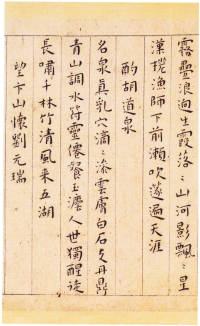 霧疊浪迥生霞落〻山河影飄〻星
漢槎漁師下前瀨吹篴遍天涯
酌胡道泉
名泉真乳穴滴〻滲雲膚白石支丹鼎
青山調水符靈僊餐玉灋人世獨醒徒
長嘯千林竹清風来五湖
望卞山懷劉元瑞